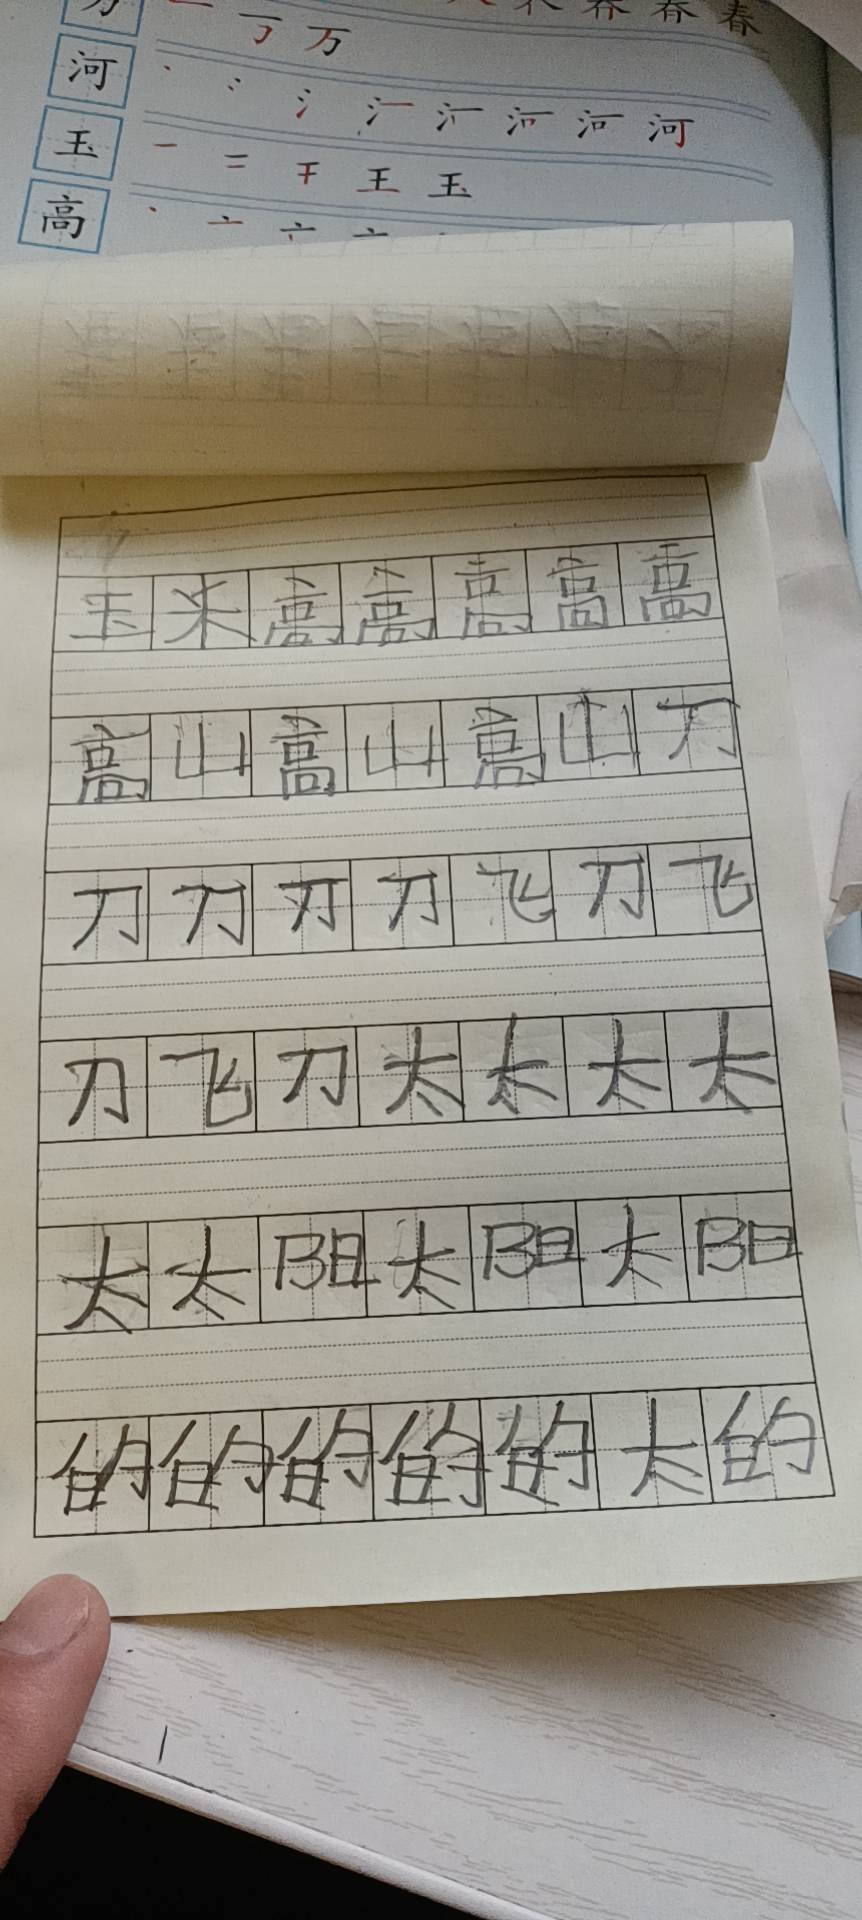 万 丆 万
河 丶 冫 氵 汇 河 河
玉 一 二 干 王 玉
高 丶 亠
玉 米 高 高 高 高 高
高 山 高 山 高 山 刀
刀 刀 刃 刀 飞 刀 飞
刀 飞 刀 太 太 太 太
太 太 阳 太 阳 太 阳
的 的 的 的 的 太 的